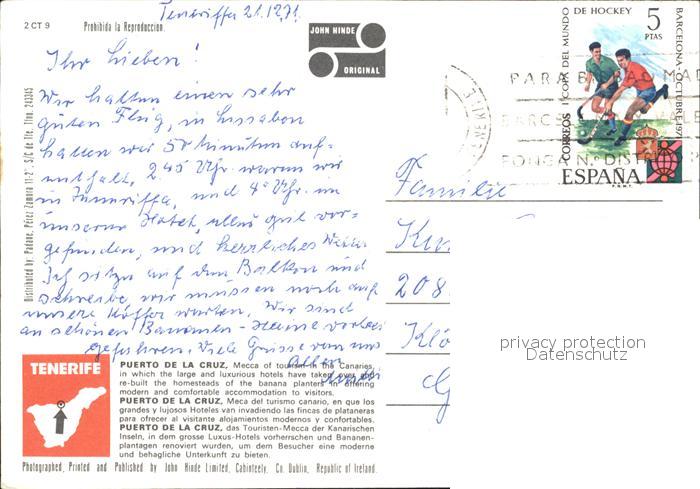 2 CT 9
Prohibida la Reproducción.
Teneriffa 21.12.71.
JOHN HINDE
ORIGINAL
Ihr Lieben!
Wir hatten einen sehr
guten Flug, in Lissabon
hatten wir 50 Minuten Auf-
enthalt. 2 45 Uhr. waren wir
in Teneriffa, und 4 Uhr. in
unserem Hotel, alles gut vor-
gefunden, und herrliches
Ich sitze auf dem Balkon und
schreibe, wir müssen noch auf
unsere Koffer warten. Wir sind
an schönen Bananen-
gefahren. Viele Grüsse von uns
Allen
Familie
208
Distributed by: Padane, Pérez Zamora S/C de Tfe. Tfno. 243345
I COPA DEL MUNDO
DE HOCKEY
BARCELONA-OCTUBRE-1971
5
PTAS
CORREOS
ESPAÑA
F.N.M.T.
PARA
PONGA N.º DISTRITO
privacy protection
Datenschutz
TENERIFE
PUERTO DE LA CRUZ, Mecca of tourism in the Canaries,
in which the large and luxurious hotels have taken over and
re-built the homesteads of the banana planters in offering
modern and comfortable accommodation to visitors.
PUERTO DE LA CRUZ, Meca del turismo canario, en que los
grandes y lujosos Hoteles van invadiendo las fincas de plataneras
para ofrecer al visitante alojamientos modernos y confortables.
PUERTO DE LA CRUZ, das Touristen-Mecca der Kanarischen
Inseln, in dem grosse Luxus-Hotels vorherrschen und Bananen-
plantagen renoviert wurden, um dem Besucher eine moderne
und behagliche Unterkunft zu bieten.
Photographed, Printed and Published by John Hinde Limited, Cabinteely, Co. Dublin, Republic of Ireland.